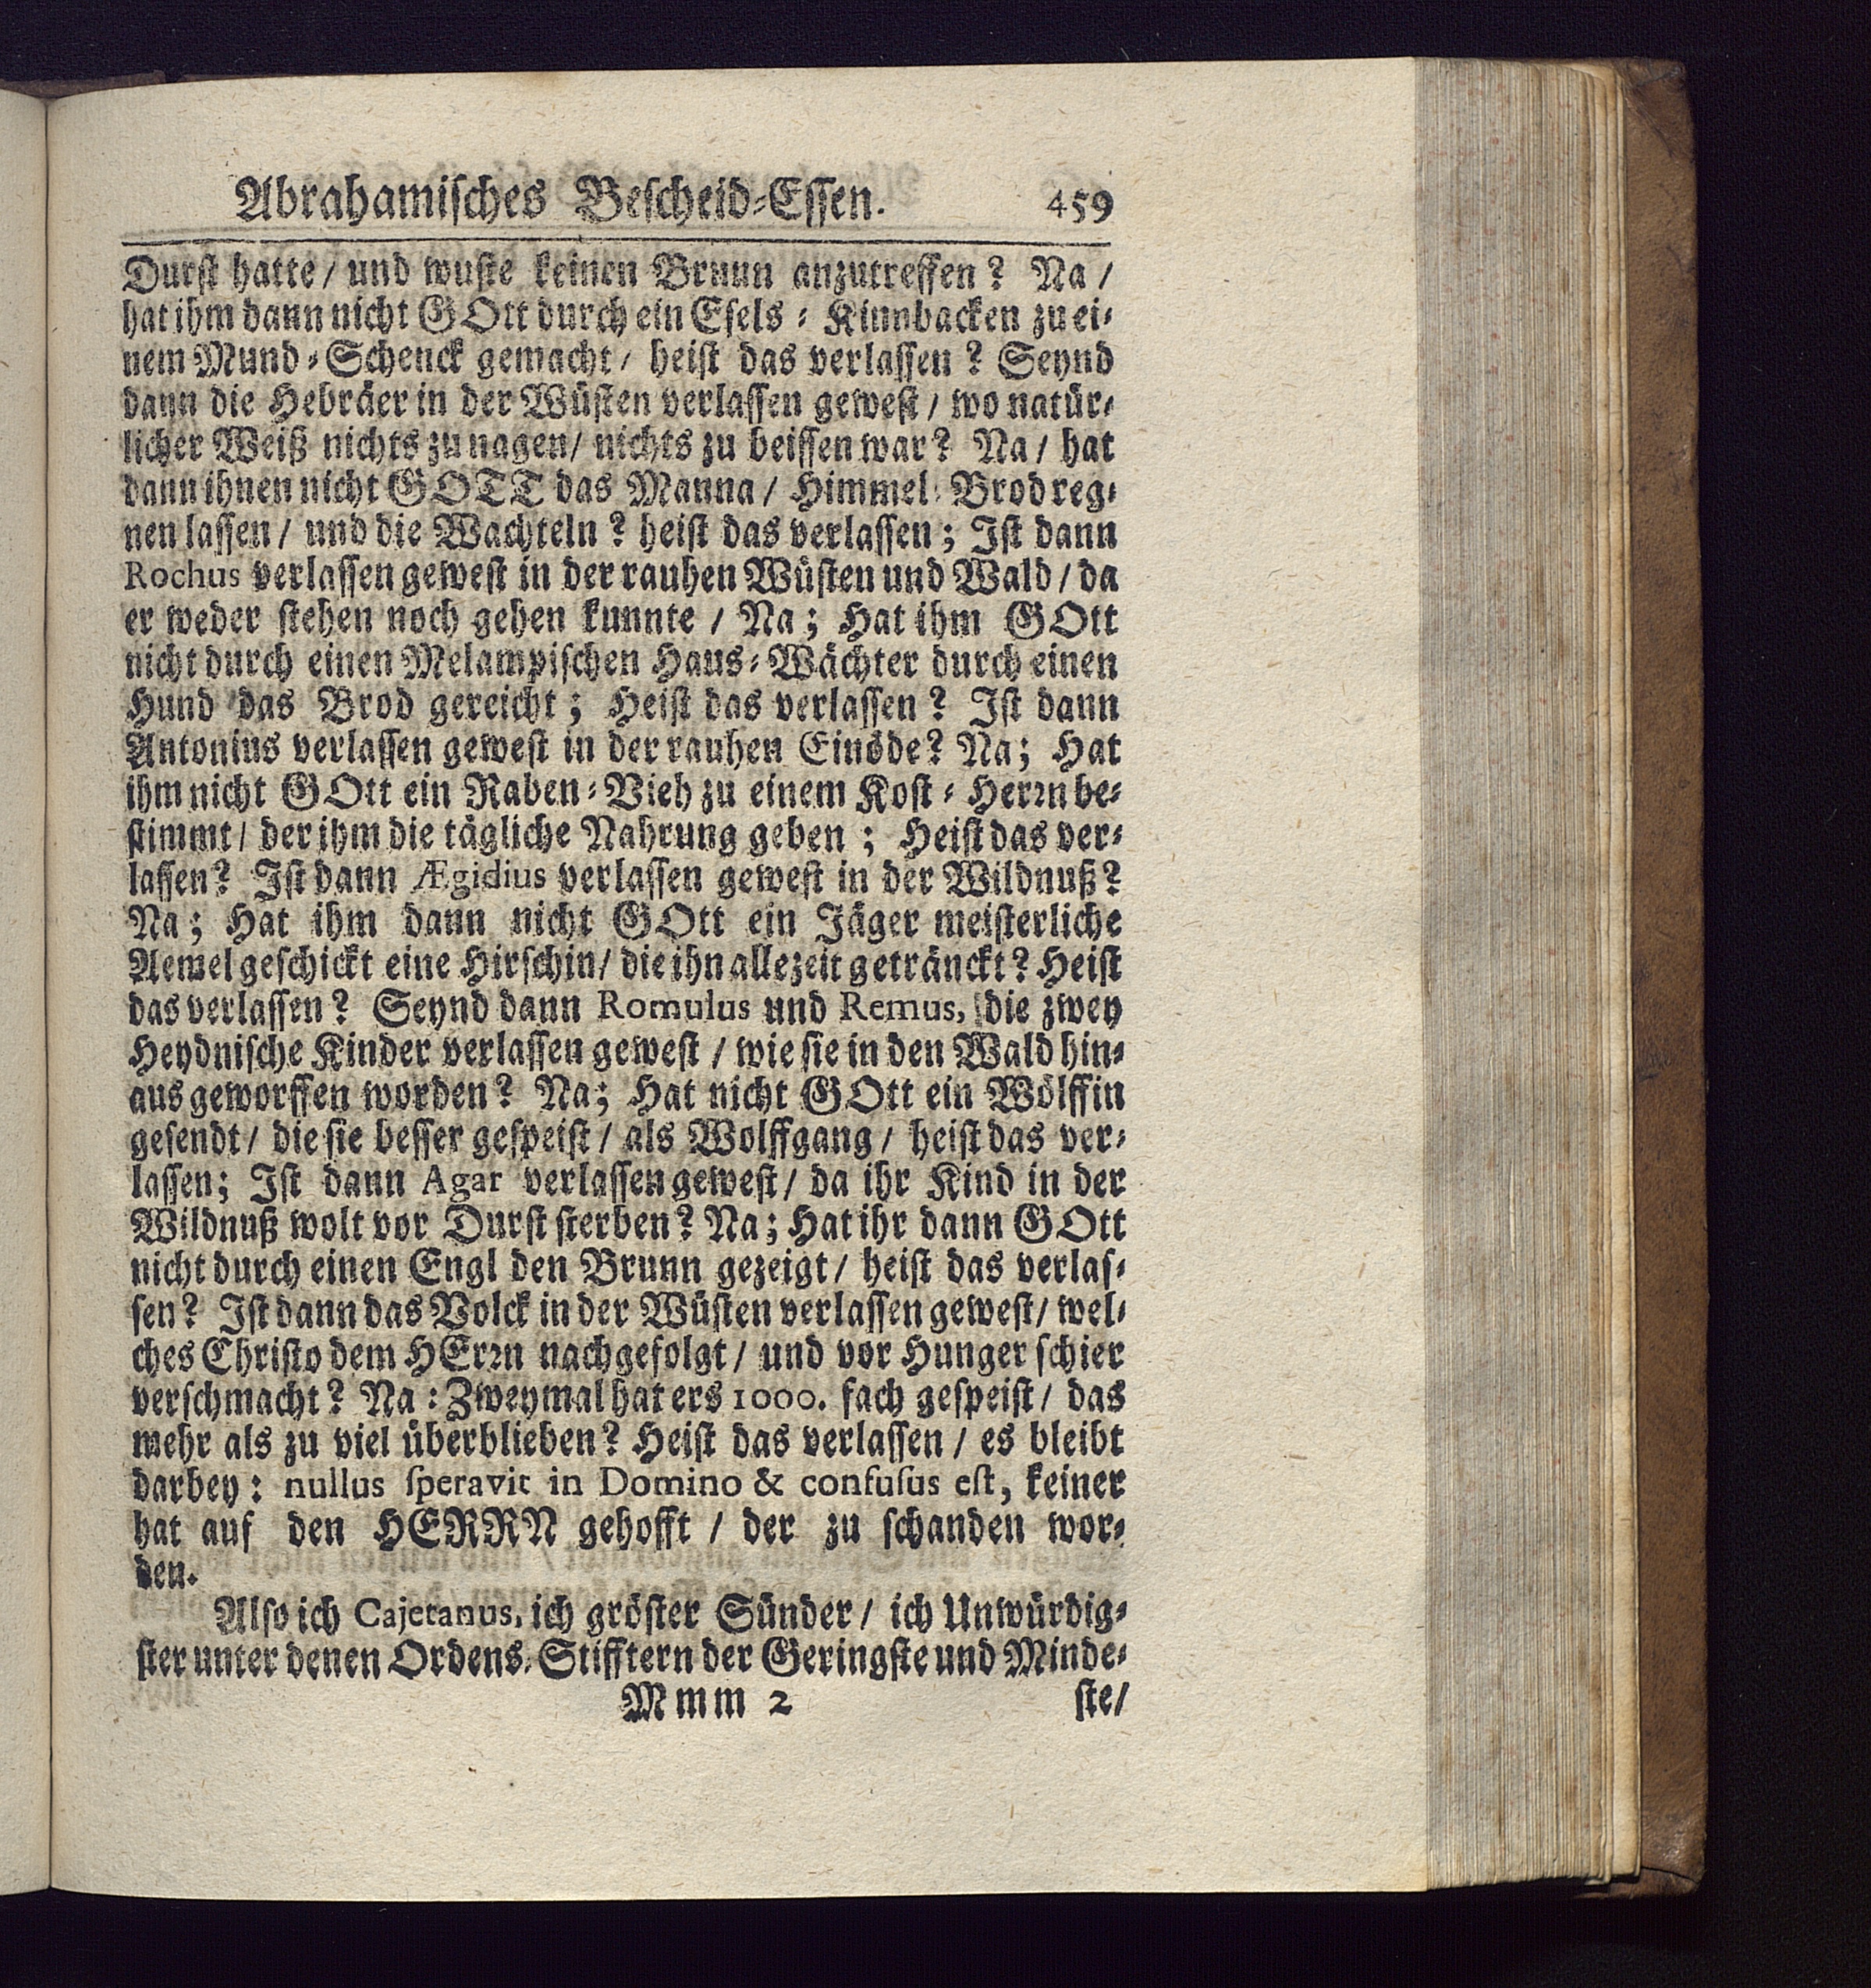 Abrahamisches Bescheid-Essen. 459
Durst hatte / und wuste keinen Brunn anzutreffen? Na /
hat ihm dann nicht GOtt durch ein Esels-Kinnbacken zu ei-
nem Mund-Schenck gemacht / heist das verlassen? Seynd
dann die Hebräer in der Wüsten verlassen gewest / wo natür-
licher Weiß nichts zu nagen / nichts zu beissen war? Na / hat
dann ihnen nicht GOTT das Manna / Himmel-Brod reg-
nen lassen / und die Wachteln? heist das verlassen; Ist dann
Rochus verlassen gewest in der rauhen Wüsten und Wald / da
er weder stehen noch gehen kunnte / Na; Hat ihm GOtt
nicht durch einen Melampischen Haus-Wächter durch einen
Hund das Brod gereicht; Heist das verlassen? Ist dann
Antonius verlassen gewest in der rauhen Einöde? Na; Hat
ihm nicht GOtt ein Raben-Vieh zu einem Kost-Herrn be-
stimmt / der ihm die tägliche Nahrung geben; Heist das ver-
lassen? Ist dann Ægidius verlassen gewest in der Wildnuß?
Na; Hat ihm dann nicht GOtt ein Jäger meisterliche
Aemel geschickt eine Hirschin / die ihn allezeit getränckt? Heist
das verlassen? Seynd dann Romulus und Remus, die zwey
Heydnische Kinder verlassen gewest / wie sie in den Wald hin-
aus geworffen worden? Na; Hat nicht GOtt ein Wölffin
gesendt / die sie besser gespeist / als Wolffgang / heist das ver-
lassen; Ist dann Agar verlassen gewest / da ihr Kind in der
Wildnuß wolt vor Durst sterben? Na; Hat ihr dann GOtt
nicht durch einen Engl den Brunn gezeigt / heist das verlas-
sen? Ist dann das Volck in der Wüsten verlassen gewest / wel-
ches Christo dem HErrn nachgefolgt / und vor Hunger schier
verschmacht? Na: Zweymal hat ers 1000. fach gespeist / das
mehr als zu viel überblieben? Heist das verlassen / es bleibt
darbey: nullus speravit in Domino & confusus est, keiner
hat auf den HERRN gehofft / der zu schanden wor-
den.
Also ich Cajetanus, ich gröster Sünder / ich Unwürdig-
ster unter denen Ordens-Stifftern der Geringste und Minde-
Mmm 2 ste /